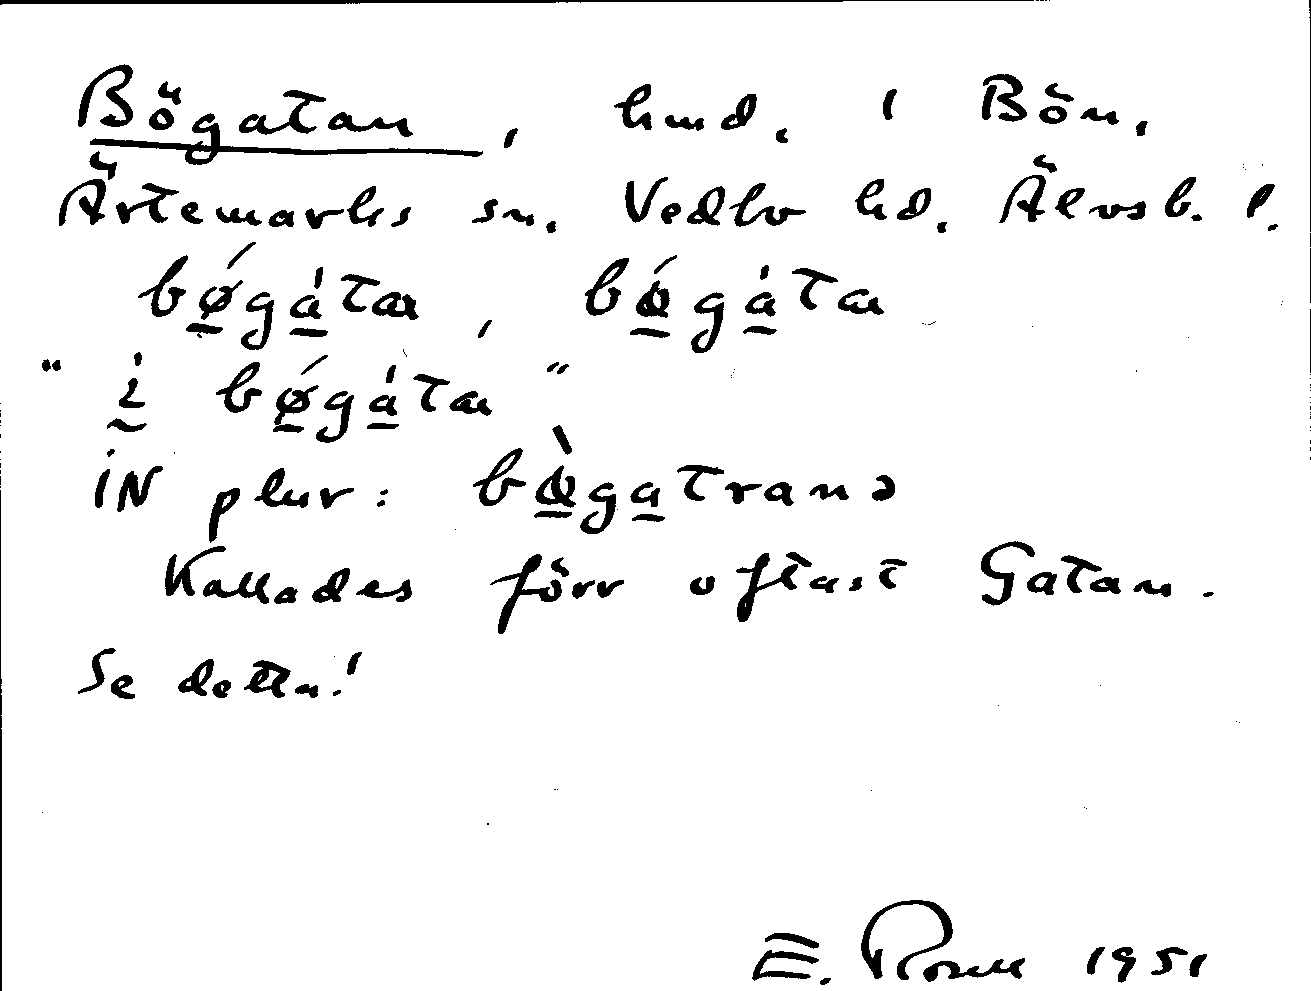 Bögatan, hmd. i Bön,
Ärtemarks sn. Vedbo hd. Älvsb. l.
bǿgátaɴ, bǿgáta
"i bǿgáta"
iN plur: bø̀gatranə
Kallades förr oftast Gatan.
Se detta!
E. Rosell 1951